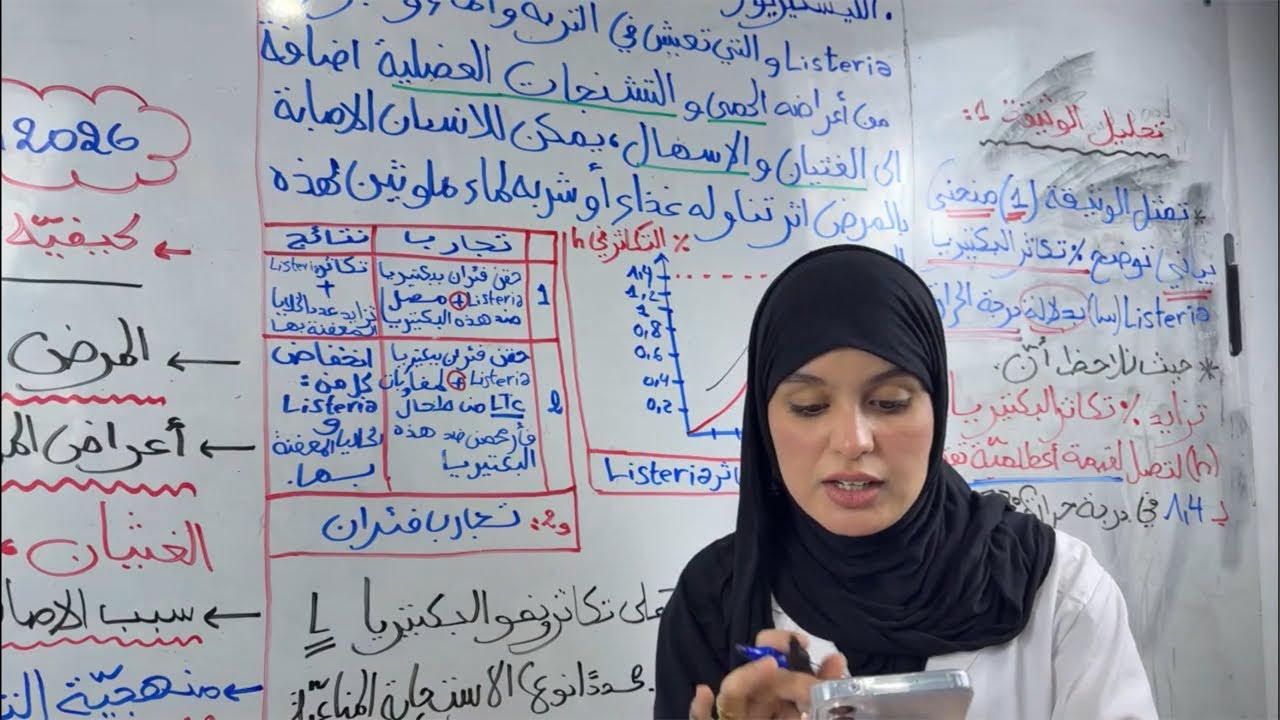 الليستيريوز.
Listeria والتي تعيش في التربة والماء و
من أعراضه الحمى و التشنجات العضلية اضافة
الى الغثيان والاسهال، يمكن للانسان الاصابة
بالمرض اثر تناوله غذاء أو شربه لماء ملوثين لهذه
تحليل الوثيقة 1:
* تمثل الوثيقة (1) منحنى
بياني توضح % تكاثر البكتيريا
Listeria (سا) بدلالة درجة الحرا
* حيث نلاحظ أنّ.
تزايد % تكاثر البكتيريا
(h) لتصل لقيمة أعظميّة
بـ 1,4 في درجة حرارة
تجارب
نتائج
1
حقن فئران ببكتيريا
Listeria + مصل
ضد هذه البكتيريا
تكاثر Listeria
+
تزايد عدد الخلايا
المعفنة بها
2
حقن فئران ببكتيريا
Listeria + لمفاويات
LTc من طحال
فأر محصن ضد هذه
البكتيريا
انخفاض
كل من:
Listeria
و
الخلايا المعفنة
بها.
و2: تجارب فئران
% التكاثر في h
1,4
1,2
1
0,8
0,6
0,4
0,2
Listeria
2026
← كيفيّة
← المرض
← أعراض
الغثيان،
← سبب
← منهجيّة
على تكاثر ونمو البكتيريا L
محددا نوع الاستجابة المناعيّة